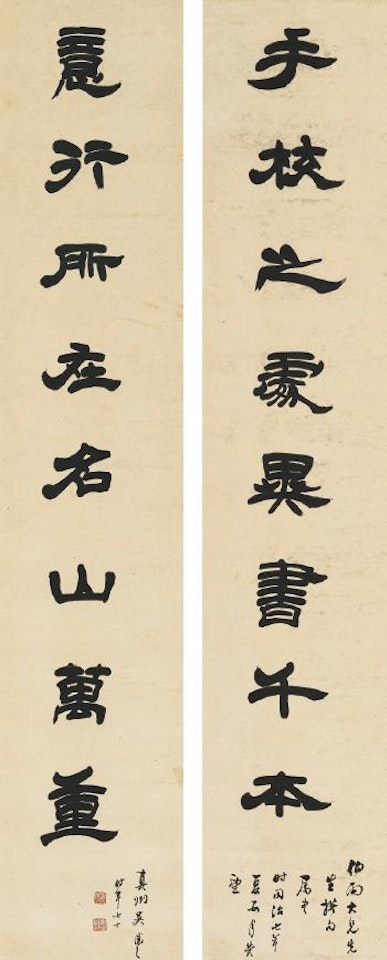 手校之處異書千本
大兄先
生撰句
屬書
時同治七年
夏五月
意行所在名山萬重
真州吳讓之
時年七十